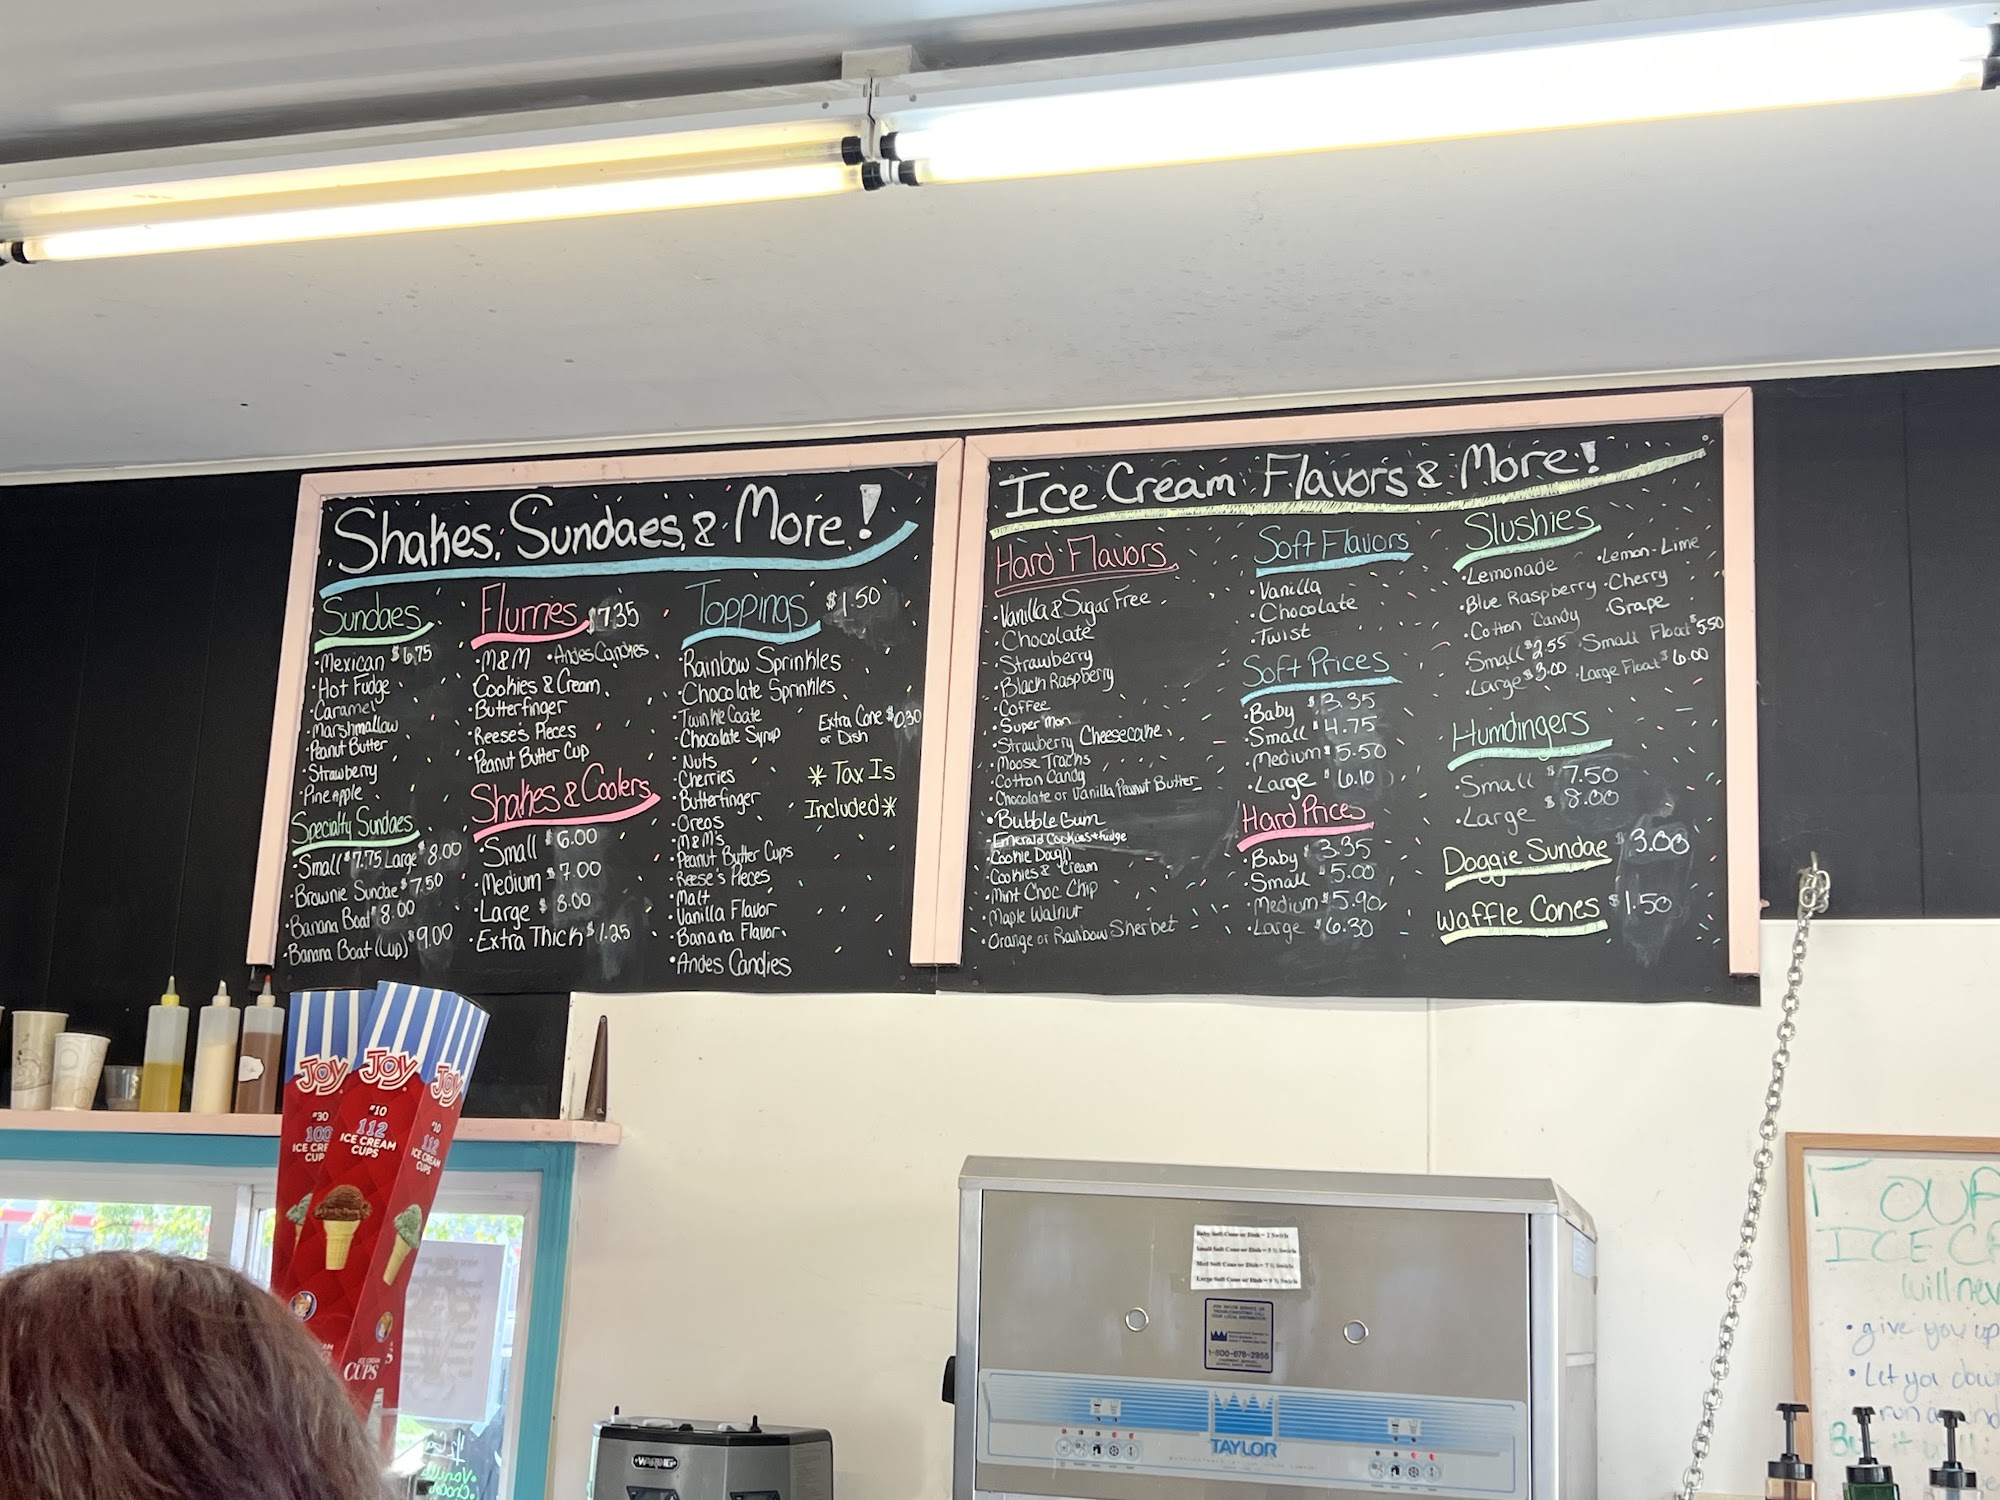 Shakes, Sundaes, & More!
Sundaes
• Mexican $6.75
• Hot Fudge
• Caramel
• Marshmallow
• Peanut Butter
• Strawberry
• Pineapple
Specialty Sundaes
• Small $7.75 Large $8.00
• Brownie Sundae $7.50
• Banana Boat $8.00
• Banana Boat (Cup) $9.00
Flurries $7.35
• M&M • Andes Candies
Cookies & Cream
• Butterfinger
• Reeses Pieces
• Peanut Butter Cup
Shakes & Coolers
• Small $6.00
• Medium $7.00
• Large $8.00
• Extra Thick $1.25
Toppings $1.50
• Rainbow Sprinkles
• Chocolate Sprinkles
• Twinkle Coate
• Chocolate Syrup
• Nuts
• Cherries
• Butterfinger
• Oreos
• M&M's
• Peanut Butter Cups
• Reese's Pieces
• Malt
• Vanilla Flavor
• Banana Flavor
• Andes Candies
Extra Cone $0.30
or Dish
* Tax Is
Included *
Ice Cream Flavors & More!
Hard Flavors
• Vanilla & Sugar Free
• Chocolate
• Strawberry
• Black Raspberry
• Coffee
• Super Man
• Strawberry Cheesecake
• Moose Tracks
• Cotton Candy
• Chocolate or Vanilla Peanut Butter
• Bubble Gum
• Emerald Cookies + Fudge
• Cookie Dough
• Cookies & Cream
• Mint Choc Chip
• Maple Walnut
• Orange or Rainbow Sherbet
Soft Flavors
• Vanilla
• Chocolate
• Twist
Soft Prices
• Baby $3.35
• Small $4.75
• Medium $5.50
• Large $6.10
Hard Prices
• Baby $3.35
• Small $5.00
• Medium $5.90
• Large $6.30
Slushies
• Lemonade • Lemon-Lime
• Blue Raspberry • Cherry
• Cotton Candy • Grape
• Small $2.55 • Small Float $5.50
• Large $3.00 • Large Float $6.00
Humdingers
• Small $7.50
• Large $8.00
Doggie Sundae $3.00
Waffle Cones $1.50
JOY
#30
100
ICE CRE
CUP
JOY
#10
112
ICE CREAM
CUPS
JOY
#10
112
ICE CREAM
CUPS
CUPS
Baby Soft Cone or Dish = 2 Swirls
Small Soft Cone or Dish = 5 ½ Swirls
Med Soft Cone or Dish = 7 ½ Swirls
Large Soft Cone or Dish = 9 ½ Swirls
1-800-678-2956
TAYLOR
WARING
OUR
ICE C
will nev
• give you up
• Let you dow